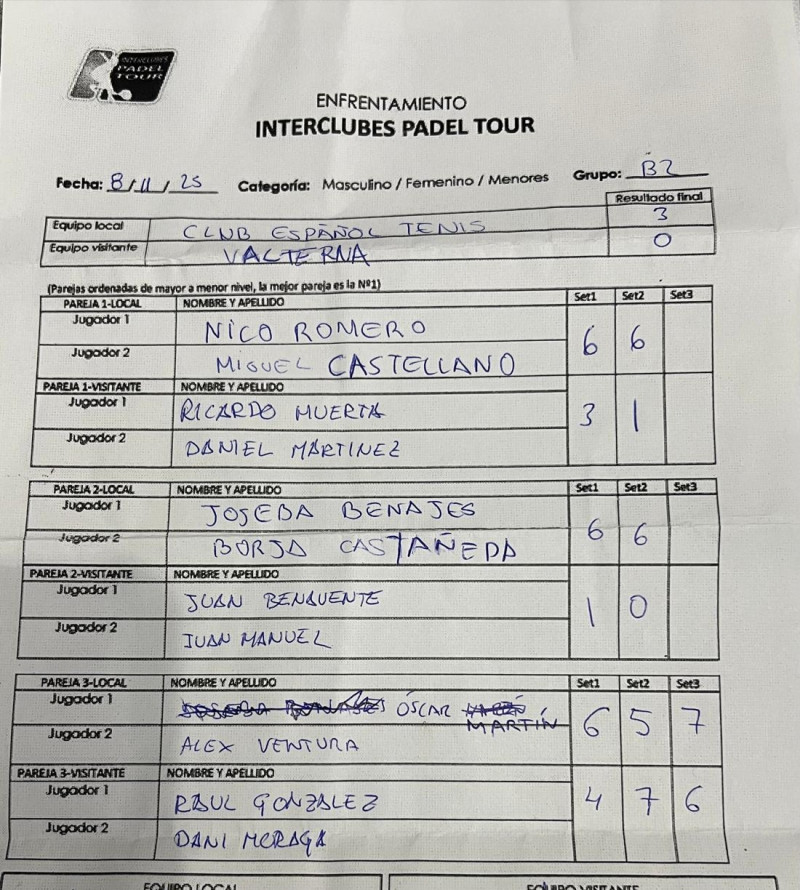 INTERCLUBES
PADEL
TOUR
ENFRENTAMIENTO
INTERCLUBES PADEL TOUR
Fecha: 8/11/25 Categoría: Masculino / Femenino / Menores Grupo: B2
Resultado final
Equipo local CLUB ESPAÑOL TENIS 3
Equipo visitante VALTERNA 0
(Parejas ordenadas de mayor a menor nivel, la mejor pareja es la Nº1)
PAREJA 1-LOCAL NOMBRE Y APELLIDO Set1 Set2 Set3
Jugador 1 NICO ROMERO 6 6
Jugador 2 MIGUEL CASTELLANO
PAREJA 1-VISITANTE NOMBRE Y APELLIDO
Jugador 1 RICARDO MUERTA 3 1
Jugador 2 DANIEL MARTINEZ
PAREJA 2-LOCAL NOMBRE Y APELLIDO Set1 Set2 Set3
Jugador 1 JOSEBA BENAJES 6 6
Jugador 2 BORJA CASTAÑEDA
PAREJA 2-VISITANTE NOMBRE Y APELLIDO
Jugador 1 JUAN BENAVENTE 1 0
Jugador 2 JUAN MANUEL
PAREJA 3-LOCAL NOMBRE Y APELLIDO Set1 Set2 Set3
Jugador 1 ÓSCAR MARTÍN 6 5 7
Jugador 2 ALEX VENTURA
PAREJA 3-VISITANTE NOMBRE Y APELLIDO
Jugador 1 RAUL GONZALEZ 4 7 6
Jugador 2 DANI MORAGA
EQUIPO LOCAL EQUIPO VISITANTE